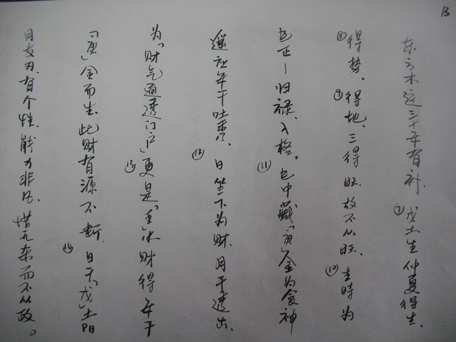 13
东方木运三十年有补.戊土生仲夏得生.
得势.得地.三得旺故不从旺.⑩生时为
巳正一归禄.入格.⑪巳中藏「庚」金为食神
年干吐秀.⑫日坐下为财.月干透出.
为「财气通透门户」⑬更是「壬」水财得年干
「庚」金而生.此财有源不断.⑭日干「戊」土阳
日支刃.有个性.能力非凡.惜无杀而不从政。